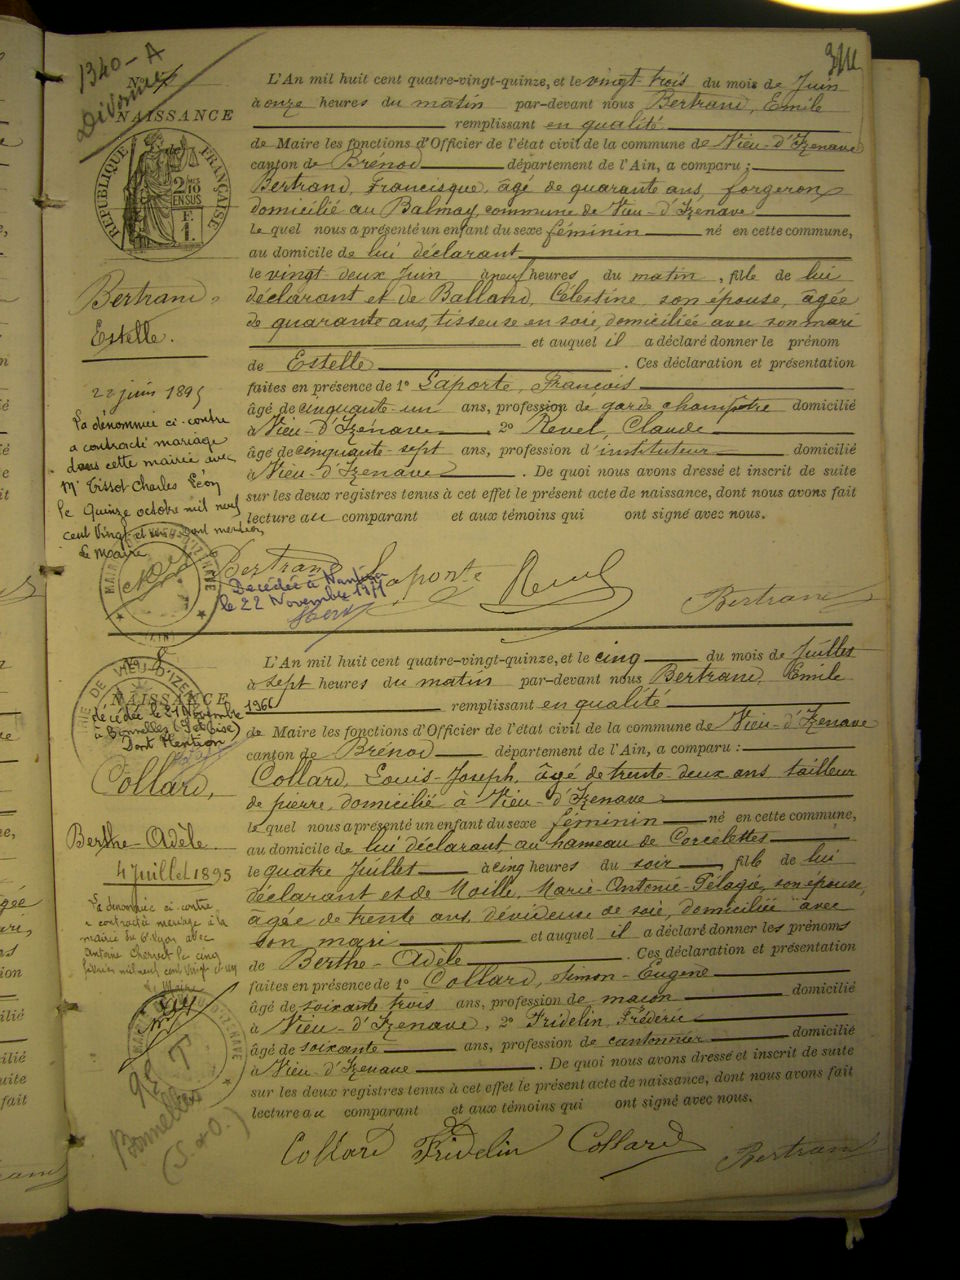 1340-A
Divonne
No
NAISSANCE
RÉPUBLIQUE FRANÇAISE
2/10
EN SUS
Bertrand,
Estelle.
22 juin 1895
La dénommée ci-contre
a contracté mariage
dans cette mairie avec
Mr Tissot Charles Léon
le Quinze octobre mil neuf
cent vingt et un Dont mention
Le Maire
L'An mil huit cent quatre-vingt-quinze, et le vingt-trois du mois de Juin
à onze heures du matin par-devant nous Bertrand, Emile
remplissant en qualité
de Maire les fonctions d'Officier de l'état civil de la commune de Vieu-d'Izenave
canton de Brénod département de l'Ain, a comparu :
Bertrand, Francisque, âgé de quarante ans, forgeron
domicilié au Balmay, commune de Vieu-d'Izenave
le quel nous a présenté un enfant du sexe féminin né en cette commune,
au domicile de lui déclarant
le vingt deux Juin à neuf heures du matin, fille de lui
déclarant et de Balland, Célestine, son épouse, âgée
de quarante ans, tisseuse en soie, domiciliée avec son mari
et auquel il a déclaré donner le prénom
de Estelle. Ces déclaration et présentation
faites en présence de 1° Laporte, François
âgé de cinquante-un ans, profession de garde champêtre domicilié
à Vieu-d'Izenave, 2° Revel, Claude
âgé de cinquante-sept ans, profession d'instituteur domicilié
à Vieu-d'Izenave. De quoi nous avons dressé et inscrit de suite
sur les deux registres tenus à cet effet le présent acte de naissance, dont nous avons fait
lecture au comparant et aux témoins qui ont signé avec nous.
Bertrand Laporte Revel Bertrand
Décédée à Nantua
le 22 Novembre 1971
No 8
NAISSANCE
décédée le 21 Novembre 1966
à Bonnelles (S et Oise)
Dont Mention
Collard,
Berthe-Adèle.
4 Juillet 1895
La dénommée ci-contre
a contracté mariage à la
mairie du 6e Lyon avec
Antoine Chervet le cinq
février mil neuf cent vingt et un
Le Maire
L'An mil huit cent quatre-vingt-quinze, et le cinq du mois de Juillet
à sept heures du matin par-devant nous Bertrand, Emile
remplissant en qualité
de Maire les fonctions d'Officier de l'état civil de la commune de Vieu-d'Izenave
canton de Brénod département de l'Ain, a comparu :
Collard, Louis-Joseph, âgé de trente-deux ans tailleur
de pierre, domicilié à Vieu-d'Izenave
le quel nous a présenté un enfant du sexe féminin né en cette commune,
au domicile de lui déclarant au hameau de Corcelettes
le quatre Juillet à cinq heures du soir, fille de lui
déclarant et de Moille, Marie-Antonie-Pélagie, son épouse,
âgée de trente ans, dévideuse de soie, domiciliée avec
son mari et auquel il a déclaré donner les prénoms
de Berthe-Adèle. Ces déclaration et présentation
faites en présence de 1° Collard, Simon-Eugène
âgé de soixante trois ans, profession de maçon domicilié
à Vieu-d'Izenave, 2° Fridelin, Fréderic
âgé de soixante ans, profession de cantonnier domicilié
à Vieu-d'Izenave. De quoi nous avons dressé et inscrit de suite
sur les deux registres tenus à cet effet le présent acte de naissance, dont nous avons fait
lecture au comparant et aux témoins qui ont signé avec nous.
Collard Fridelin Collard Bertrand
Bonnelles
(S. & O.)